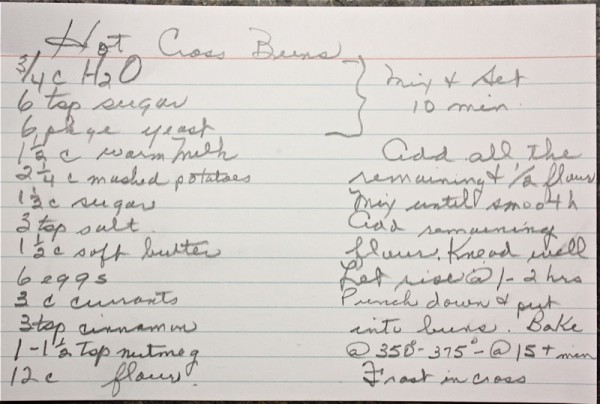 Hot Cross Buns
3/4 c H2O
6 tsp sugar
6 pkge yeast
Mix & Set
10 min.
1 1/2 c warm milk
2 1/4 c mashed potatoes
1 1/2 c sugar
3 tsp salt.
1 1/2 c soft butter
6 eggs
3 c currants
3 tsp cinnamon
1-1 1/2 Tsp nutmeg
12 c flour.
Add all the
remaining & 1/2 flour
Mix until smooth
Add remaining
flour. Knead well
Let rise @ 1-2 hrs
Punch down & put
into buns. Bake
@ 350°-375°-@ 15+ min
Frost in cross